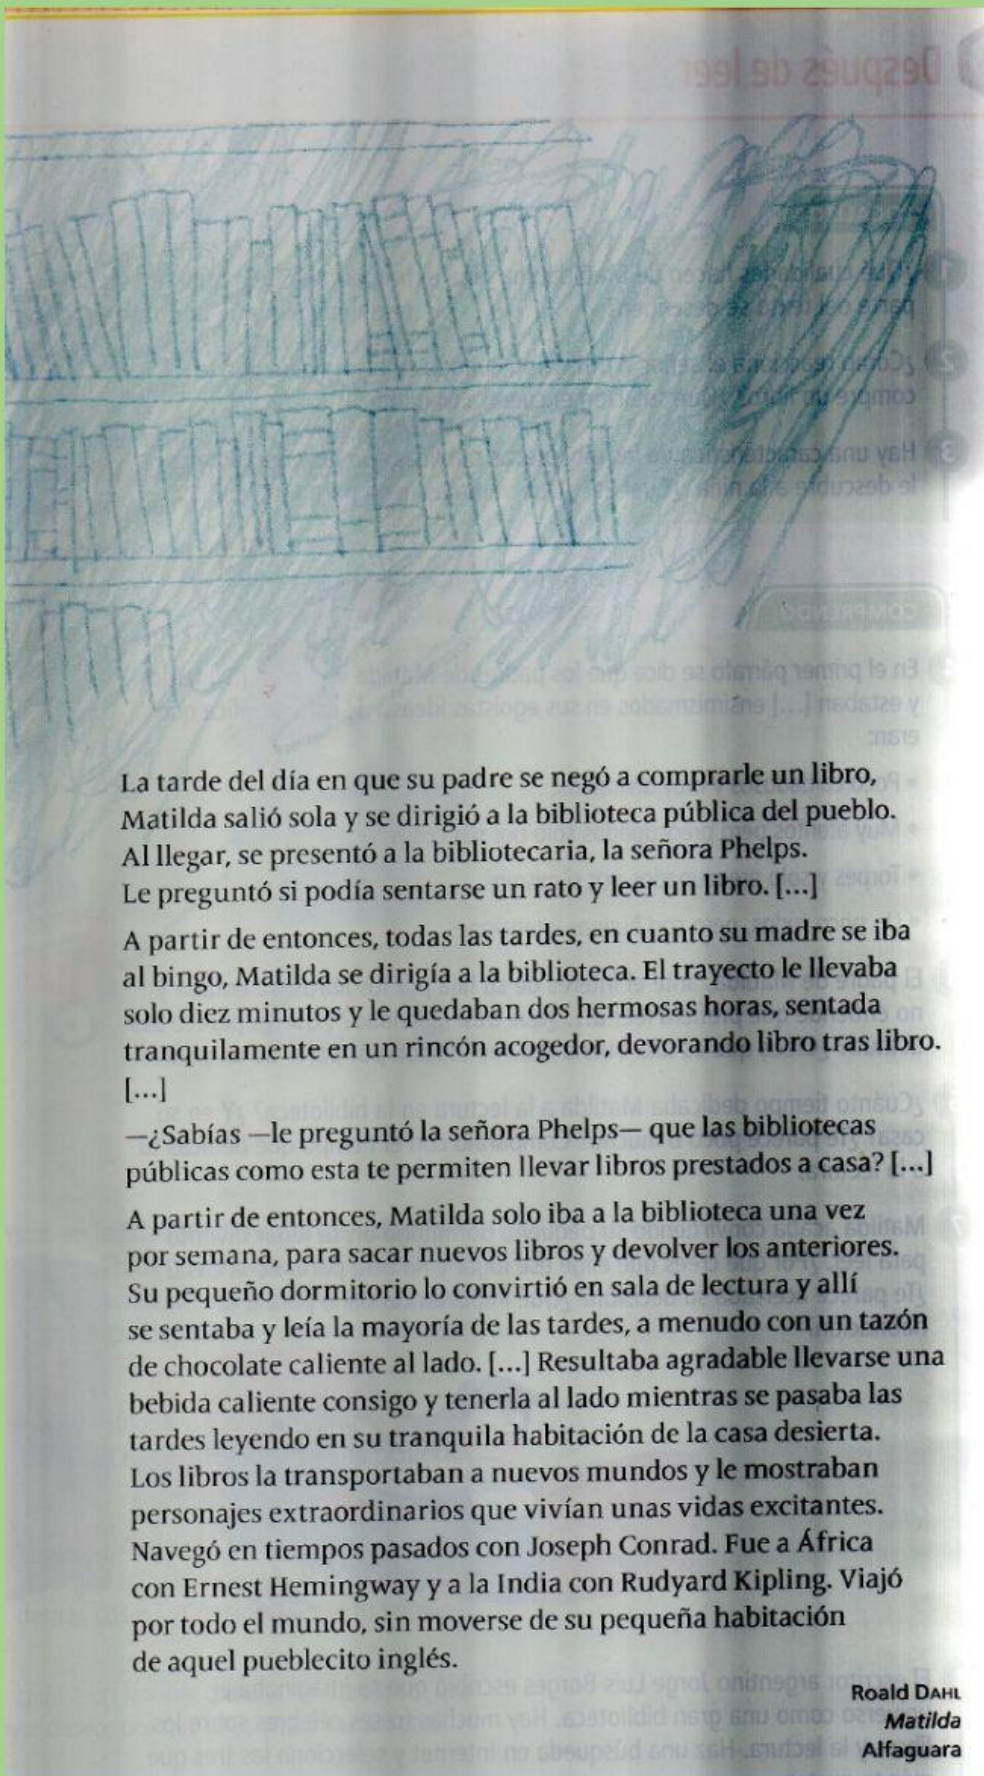 La tarde del día en que su padre se negó a comprarle un libro,
Matilda salió sola y se dirigió a la biblioteca pública del pueblo.
Al llegar, se presentó a la bibliotecaria, la señora Phelps.
Le preguntó si podía sentarse un rato y leer un libro. [...]
A partir de entonces, todas las tardes, en cuanto su madre se iba
al bingo, Matilda se dirigía a la biblioteca. El trayecto le llevaba
solo diez minutos y le quedaban dos hermosas horas, sentada
tranquilamente en un rincón acogedor, devorando libro tras libro.
[...]
—¿Sabías —le preguntó la señora Phelps— que las bibliotecas
públicas como esta te permiten llevar libros prestados a casa? [...]
A partir de entonces, Matilda solo iba a la biblioteca una vez
por semana, para sacar nuevos libros y devolver los anteriores.
Su pequeño dormitorio lo convirtió en sala de lectura y allí
se sentaba y leía la mayoría de las tardes, a menudo con un tazón
de chocolate caliente al lado. [...] Resultaba agradable llevarse una
bebida caliente consigo y tenerla al lado mientras se pasaba las
tardes leyendo en su tranquila habitación de la casa desierta.
Los libros la transportaban a nuevos mundos y le mostraban
personajes extraordinarios que vivían unas vidas excitantes.
Navegó en tiempos pasados con Joseph Conrad. Fue a África
con Ernest Hemingway y a la India con Rudyard Kipling. Viajó
por todo el mundo, sin moverse de su pequeña habitación
de aquel pueblecito inglés.
Roald DAHL
Matilda
Alfaguara